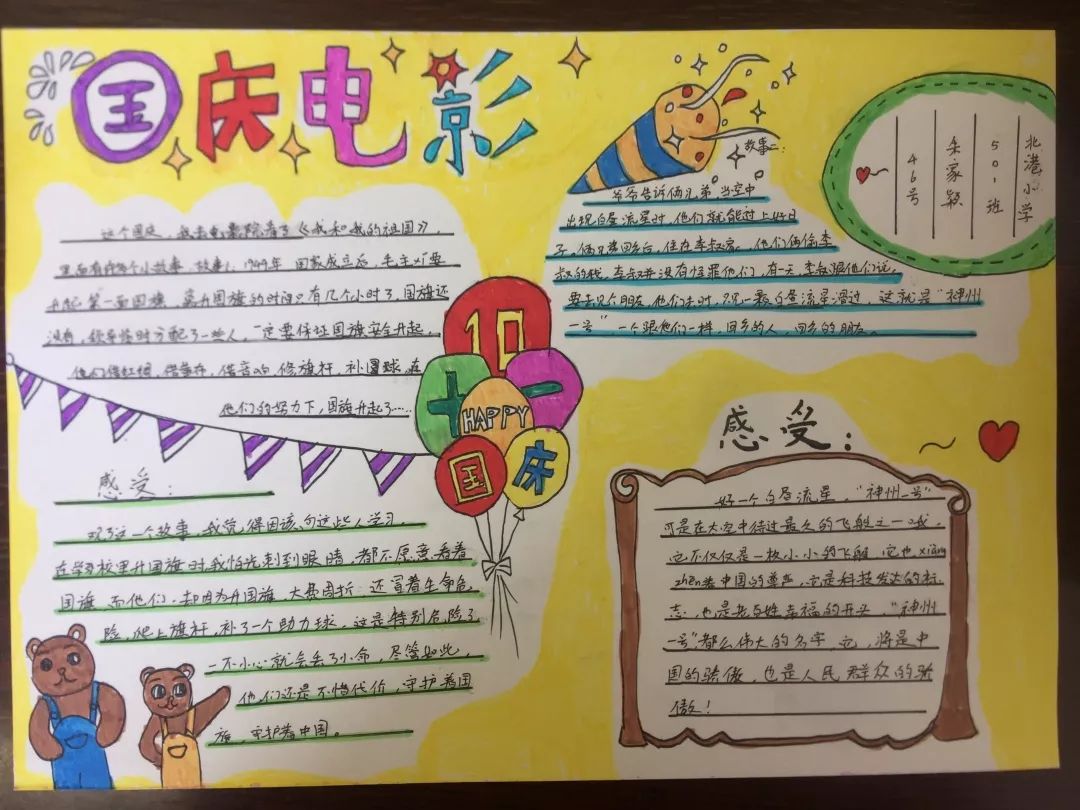 国庆电影
这个国庆,我去电影院看了《我和我的祖国》,
里面有许多个小故事,故事1:1949年 国家成立后,毛主xi要
升起第一面国旗,离升国旗的时间只有几个小时了,国旗还
没有,领导临时分配了一些人,一定要保证国旗安全升起,
他们借红绸,借
他们的努力下,国旗升起了……
感受:
观了这一个故事,我觉得因该向这些人学习,
在学校里升国旗时,我怕光刺到眼睛,都不愿意看着
国旗,而他们,却因为升国旗,大费周折,还冒着生命危
险,爬上旗杆,补了一个助力球,这是特别危险了
一不小心就会丢了小命,尽管如此,
他们还是不惜代价,守护着国
旗,守护着中国。
10
十一
HAPPY
国庆
故事二:
爷爷告诉俩兄弟,当空中
出现白昼流星时,他们就能过上好日
子。俩兄弟回乡后,住为李叔家。他们俩偷李
叔的钱,李叔并没有怪罪他们,有一天,李叔跟他们说,
要去见个朋友,他们去时,只见一颗白昼流星滑过,这就是"神州
一号",一个跟他们一样,回乡的人,回乡的朋友。
北港小学
501班
朱家颖
46号
感受:
好一个白昼流星,"神州一号"
可是在太空中待过最久的飞船之一哦,
它不仅仅是一枚小小的飞船,它也xiàng
zhēn着中国的尊严,它是科技发达的标
志,也是老百姓幸福的开头,"神州
一号"都么伟大的名字,它,将是中
国的骄傲,也是人民群众的骄
傲!